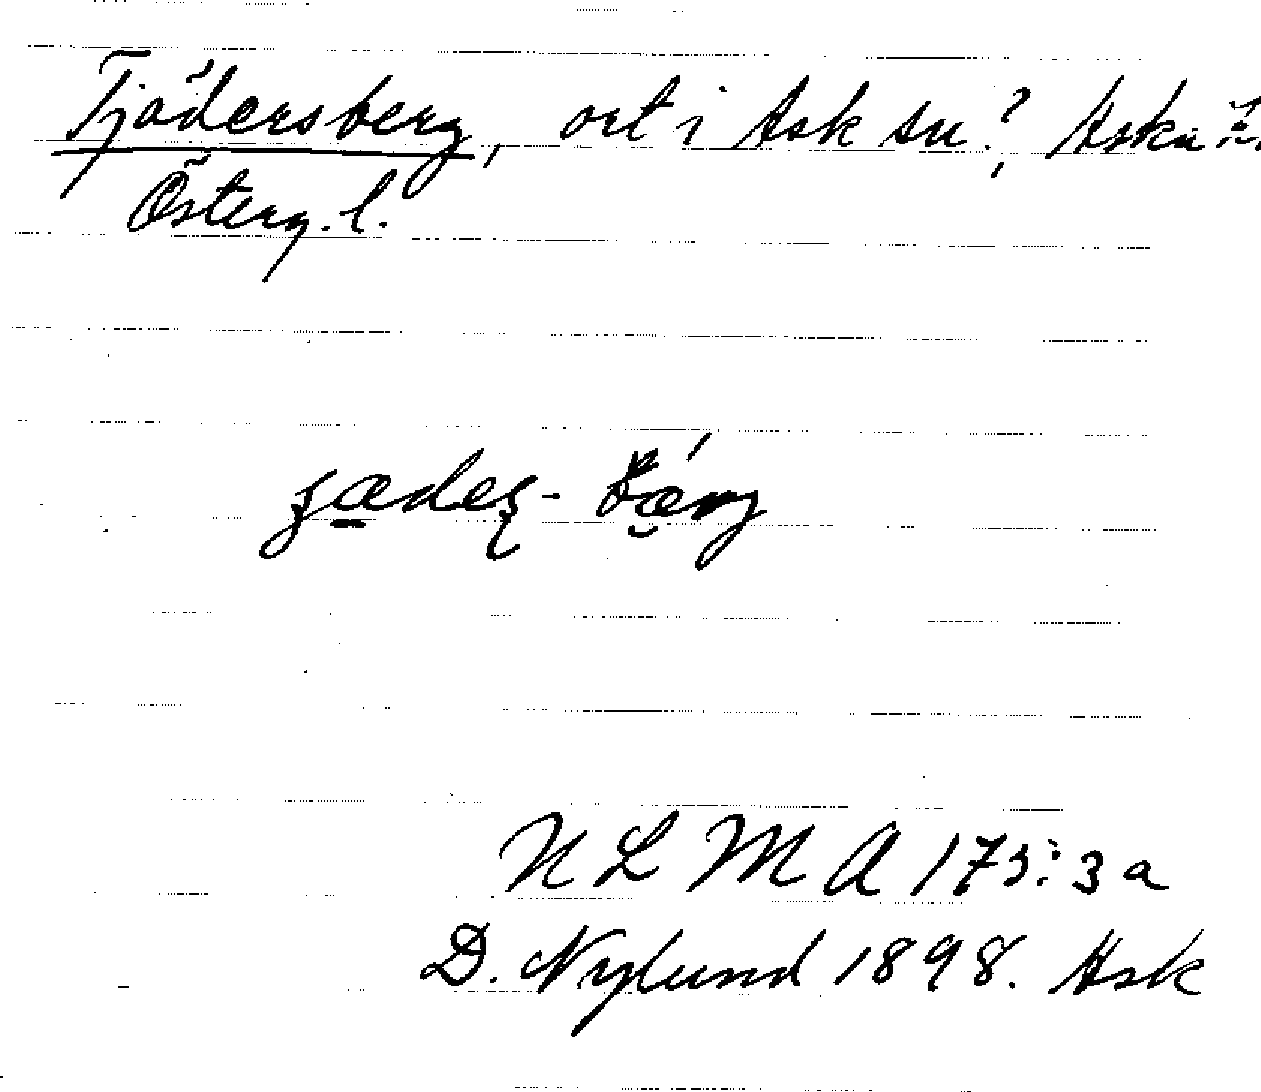 Tjädersberg, ort i Ask sn.? Aska h.
Österg. l.
NLMA 173:3a
D. Nylund 1898. Ask